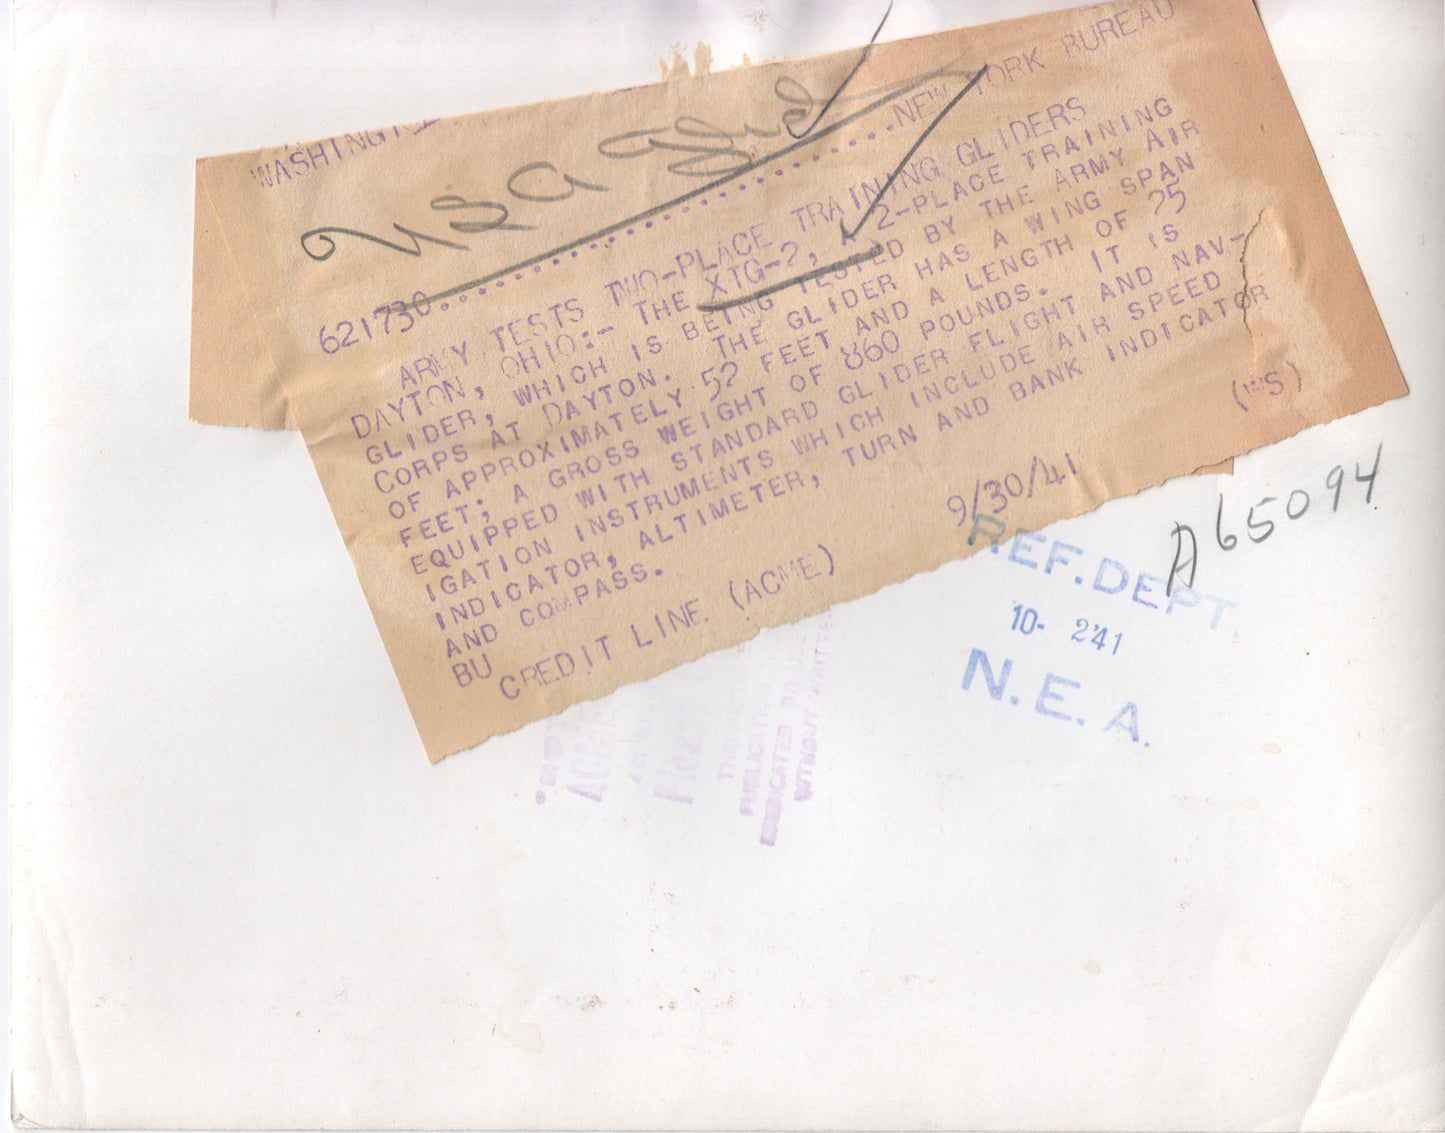 NEW YORK BUREAU
USA
621730
ARMY TESTS TWO-PLACE TRAINING GLIDERS
DAYTON, OHIO:- THE XTG-2, A 2-PLACE TRAINING
GLIDER, WHICH IS BEING TESTED BY THE ARMY AIR
CORPS AT DAYTON. THE GLIDER HAS A WING SPAN
OF APPROXIMATELY 52 FEET AND A LENGTH OF 25
FEET; A GROSS WEIGHT OF 860 POUNDS. IT IS
EQUIPPED WITH STANDARD GLIDER FLIGHT AND NAV-
IGATION INSTRUMENTS WHICH INCLUDE AIR SPEED
INDICATOR, ALTIMETER, TURN AND BANK INDICATOR
AND COMPASS.
BU
CREDIT LINE (ACME) 9/30/41
A65094
REF. DEPT
10- 2'41
N.E.A.
WITHOUT